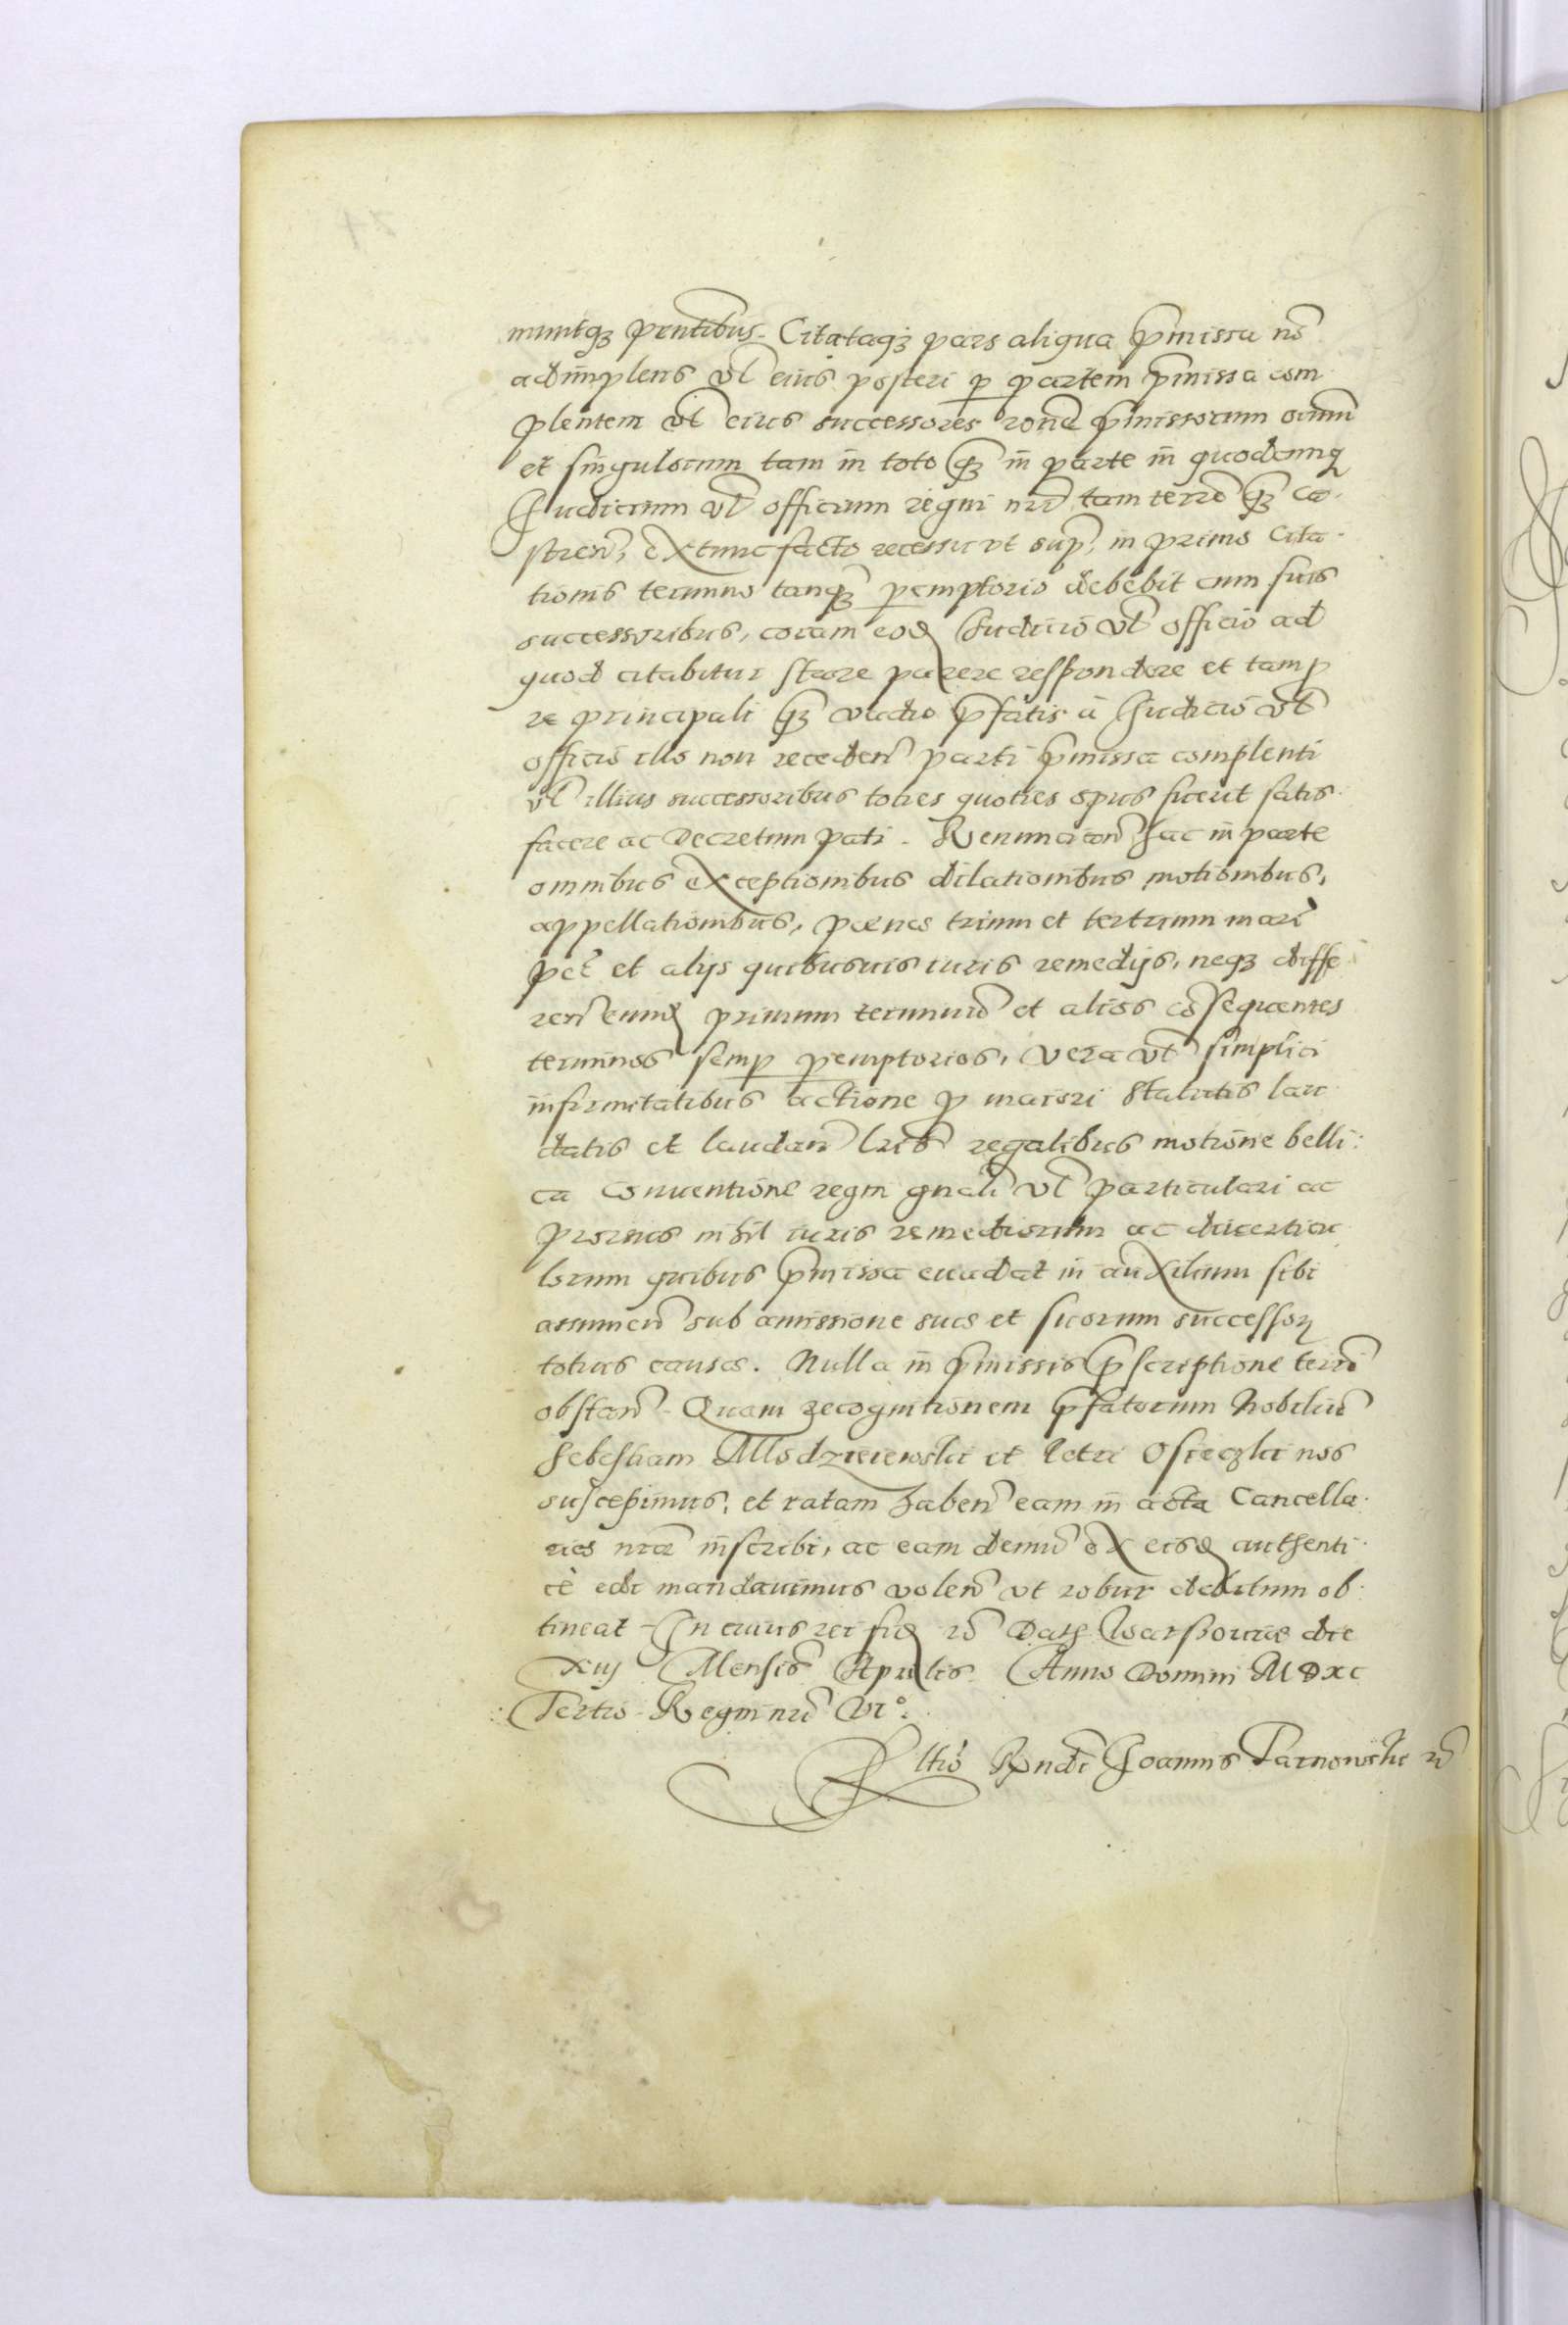 muntq₃ pñtibus. Citataq₃ pars aliqua p̄missa nō
adimplens vl̄ eius posteri ꝑ partem p̄missa com
plentem vl̄ eius successores rōne p̄missorum oīmū
et singulorum tam in toto q̄₃ in parte in quodcunq₃
Judicium vl̄ officium regni nr̄i tam terrē q̄₃ ca
streñ, extunc facto recessu vt sup̄, in primo cita
tionis termino tanq̄₃ ꝑemptorio debebit cum suis
successoribus, coram eod̄ Judicio vl̄ officio ad
quod citabitur stare parere respondere et tam ꝓ
re principali q̄₃ vadio p̄fatis à Judicio vl̄
officio illo non recedeñ parti p̄missa complenti
vl̄ illius successoribus toties quoties opus fuerit satis
facere ac decretum pati. Renunciatoñ hac in parte
omnibus exceptionibus dilationibus motionibus,
appellationibus, poenas trium et tertium mar̄
pet̄ et alijs quibusuis iuris remedijs, neq₃ diffe
reñ eund̄ primum terminū et alios cōsequentes
terminos semꝑ ꝑemptorios, vera vt simplici
infirmitatibus actione ꝓ maiori Statutis lau
datis et laudañ lr̄is regalibus motione belli
ca Conuentione regni gnāli vl̄ particulari ac
prorsus nihil iuris remediorum ac diuerticu
lorum quibus p̄missa euadat in auxilium sibi
assumeñ sub amissione suae et suorum successoꝝ
totius causae. Nulla in p̄missis p̄scriptione terrī
obstañ. Quam recognitionem p̄fatorum Nobiliū
Sebestiani Mlodzieiewski et Petri Osieczki nos
suscepimus, et ratam habeñ eam in acta Cancella
riae nr̄ae inscribi, ac eam demū ex eisd̄ authenti
cè edi mandauimus voleñ vt robur debitum ob
tineat. In cuius rei fid̄ rc̄ Dat₃ Warssouiae die
xiij Mensis Aprilis Anno Domini MDXC
Tertio Regni nr̄i vi°.
Rltio Rndi Joannis Tarnowski rc̄